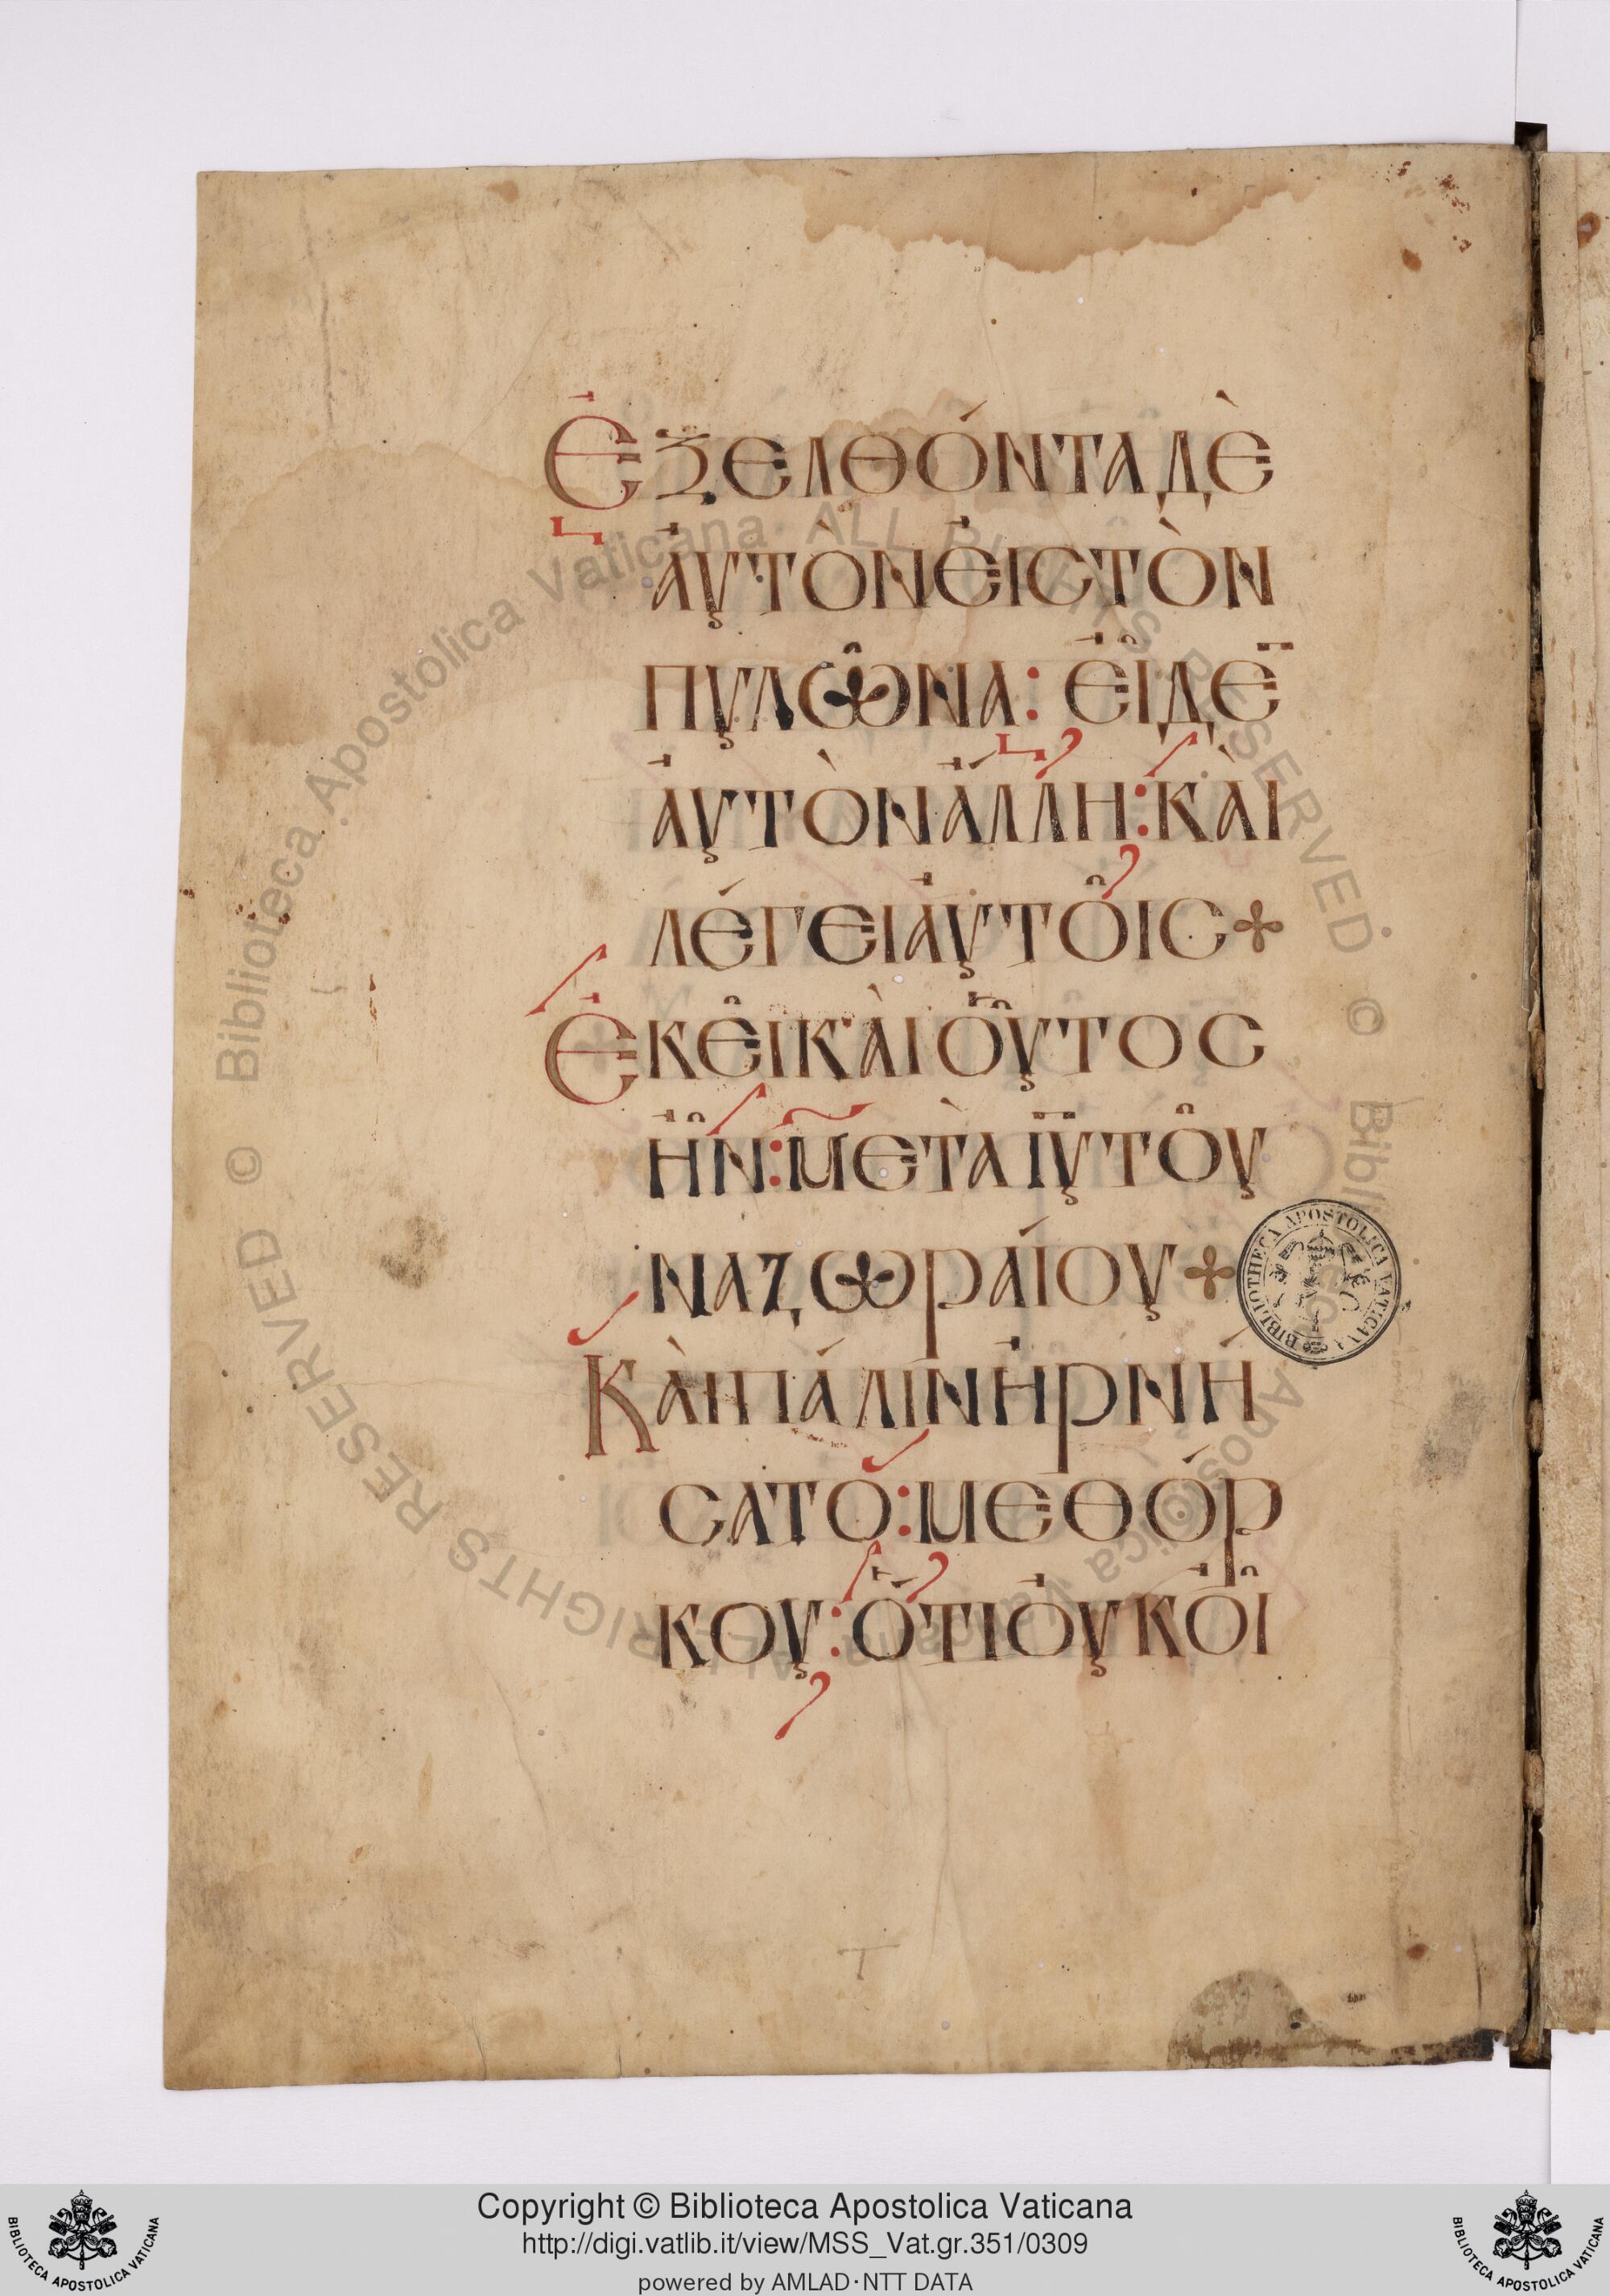 Ἐξελθόντα δὲ
ἀυτὸν ἐις τὸν
πυλῶνα : ἐῖδε̄
ἀυτὸν ἄλλη : κὰι
λέγει ἀυτοῖς +
Ἐκεῖ κὰι οὗτος
ἦν : μετὰ ῑῡ τοῦ
ναζωραίου +
Κὰι πάλιν ἠρνή
σατο : μεθ όρ
κου : ὅτι ὀυκ ὁῖ
BIBLIOTHECA APOSTOLICA VATICANA
© Biblioteca Apostolica Vaticana ALL RIGHTS RESERVED © Biblioteca Apostolica Vaticana ALL RIGHTS RESERVED
BIBLIOTECA APOSTOLICA VATICANA
Copyright © Biblioteca Apostolica Vaticana
http://digi.vatlib.it/view/MSS_Vat.gr.351/0309
powered by AMLAD·NTT DATA
BIBLIOTECA APOSTOLICA VATICANA